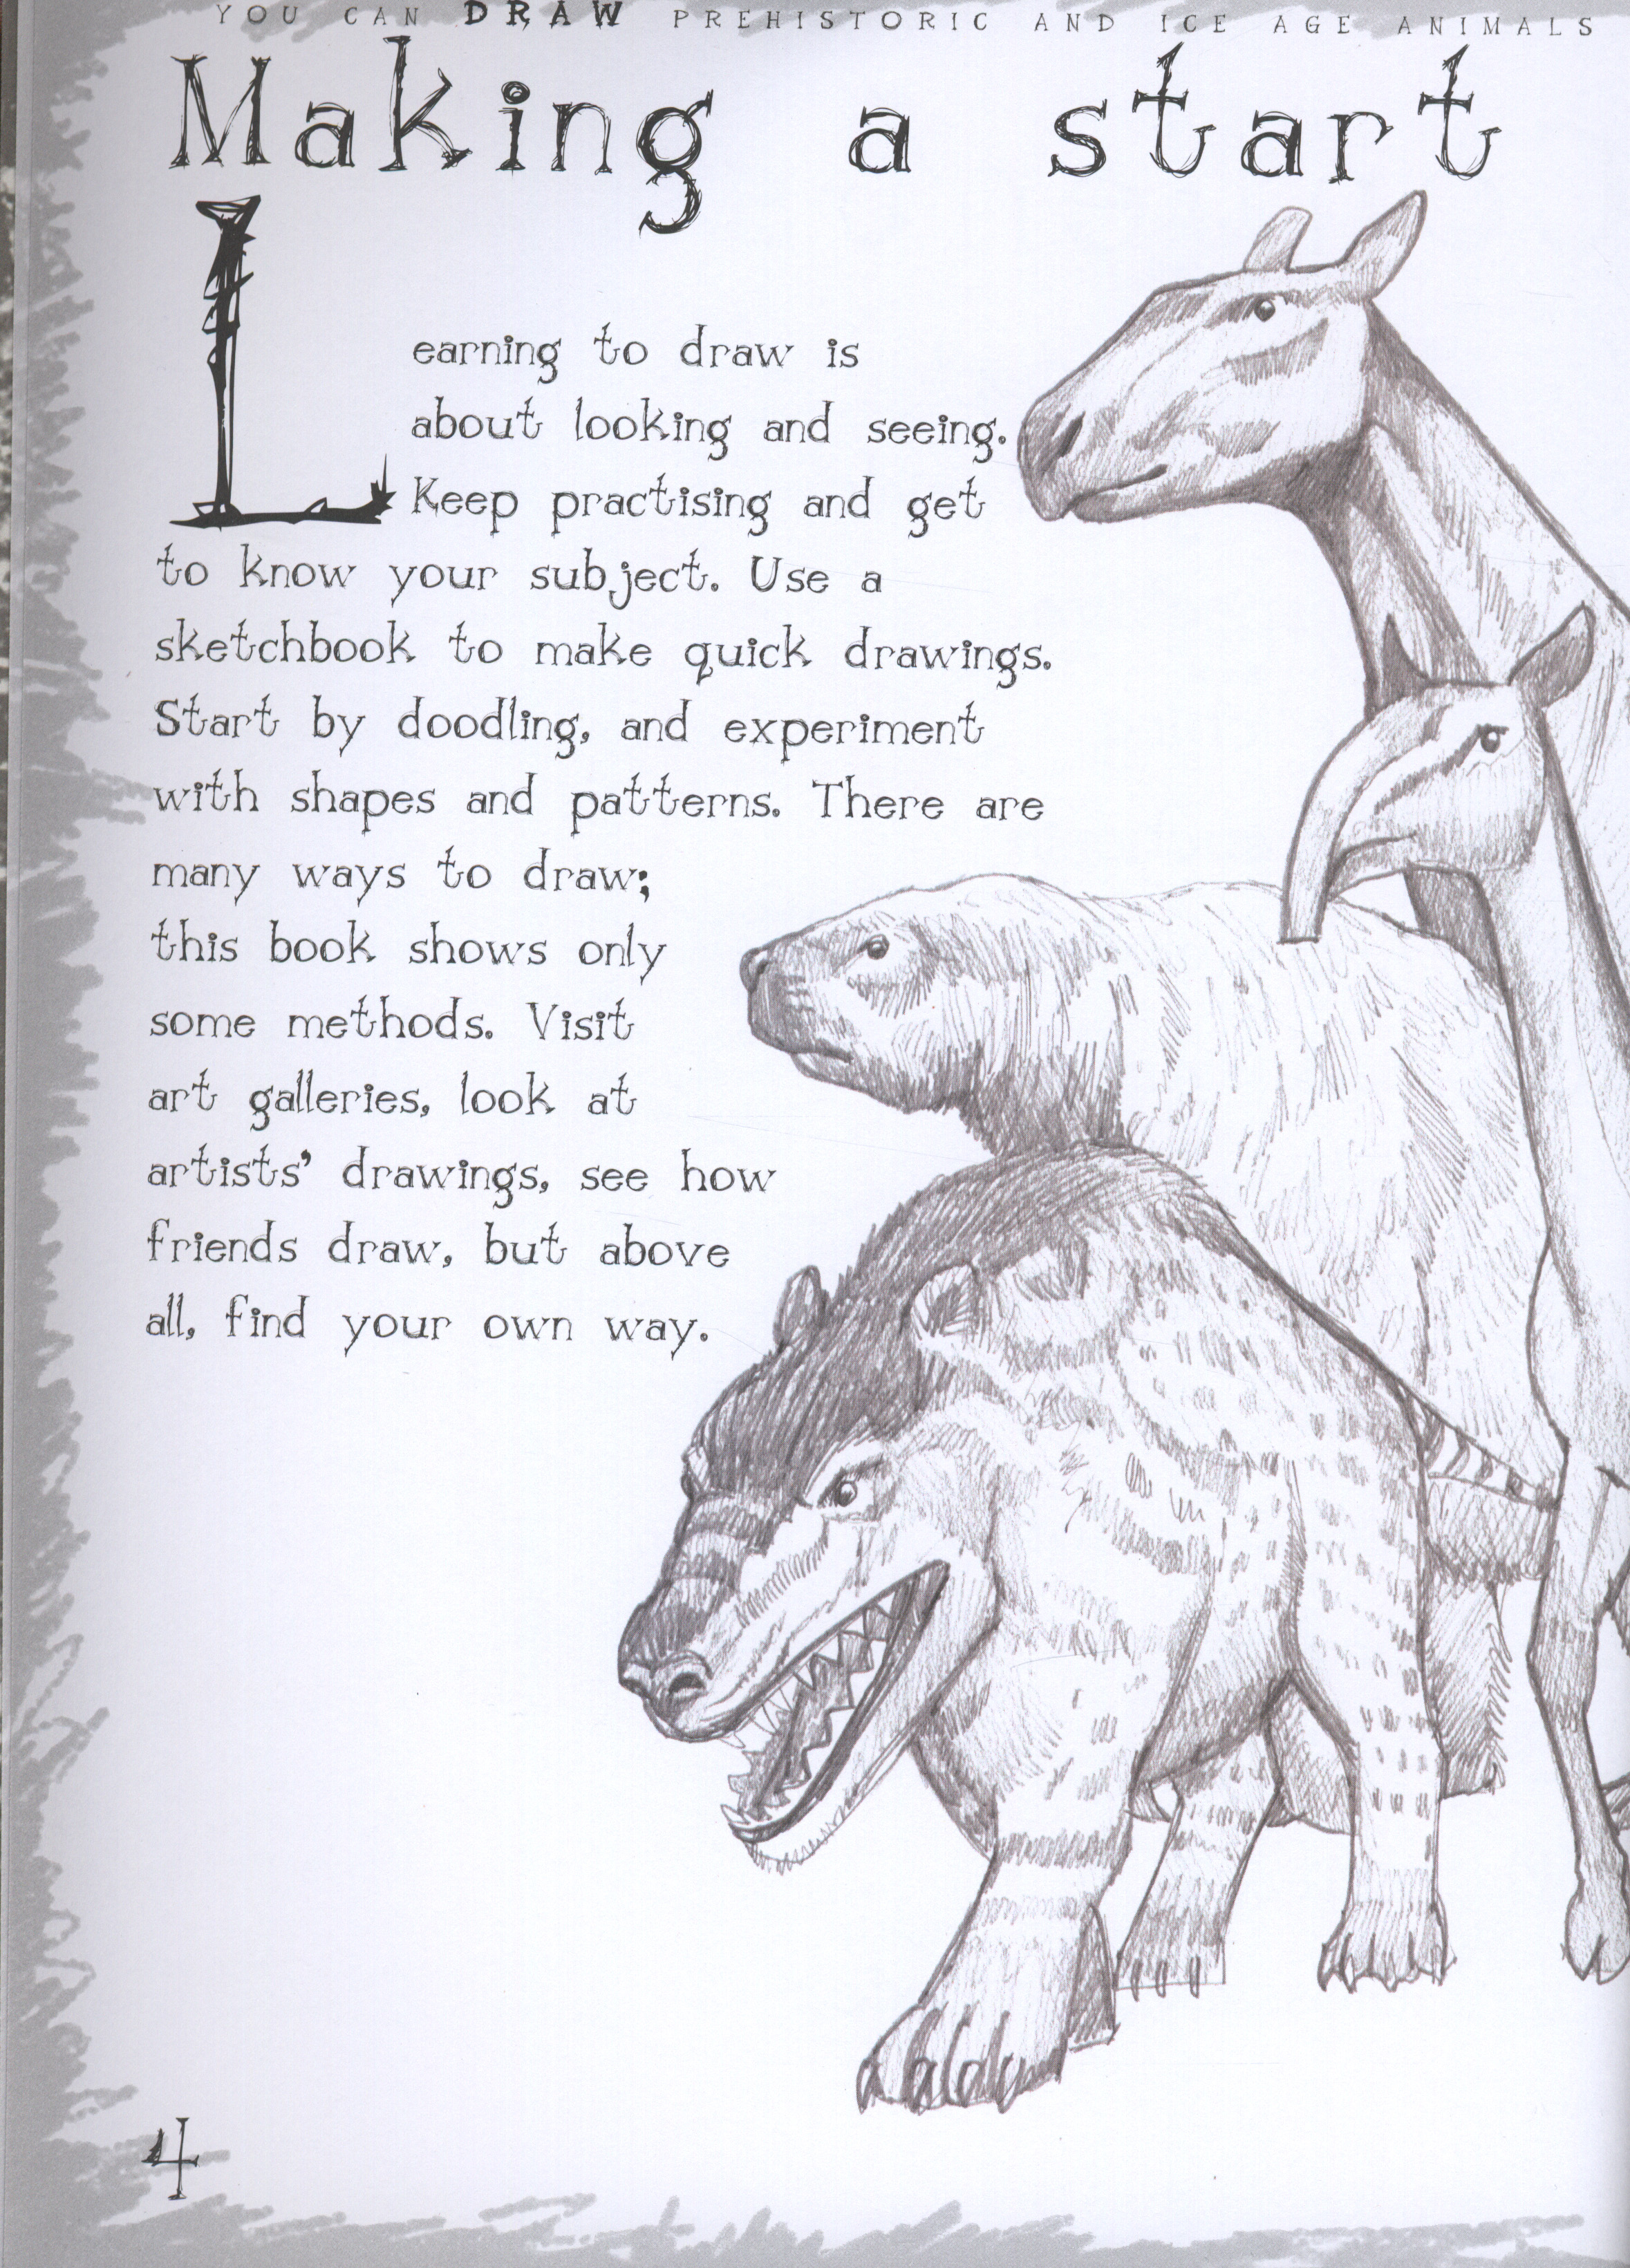 YOU CAN DRAW PREHISTORIC AND ICE AGE ANIMALS
Making a start
Learning to draw is
about looking and seeing.
Keep practising and get
to know your subject. Use a
sketchbook to make quick drawings.
Start by doodling, and experiment
with shapes and patterns. There are
many ways to draw;
this book shows only
some methods. Visit
art galleries, look at
artists’ drawings, see how
friends draw, but above
all, find your own way.
4